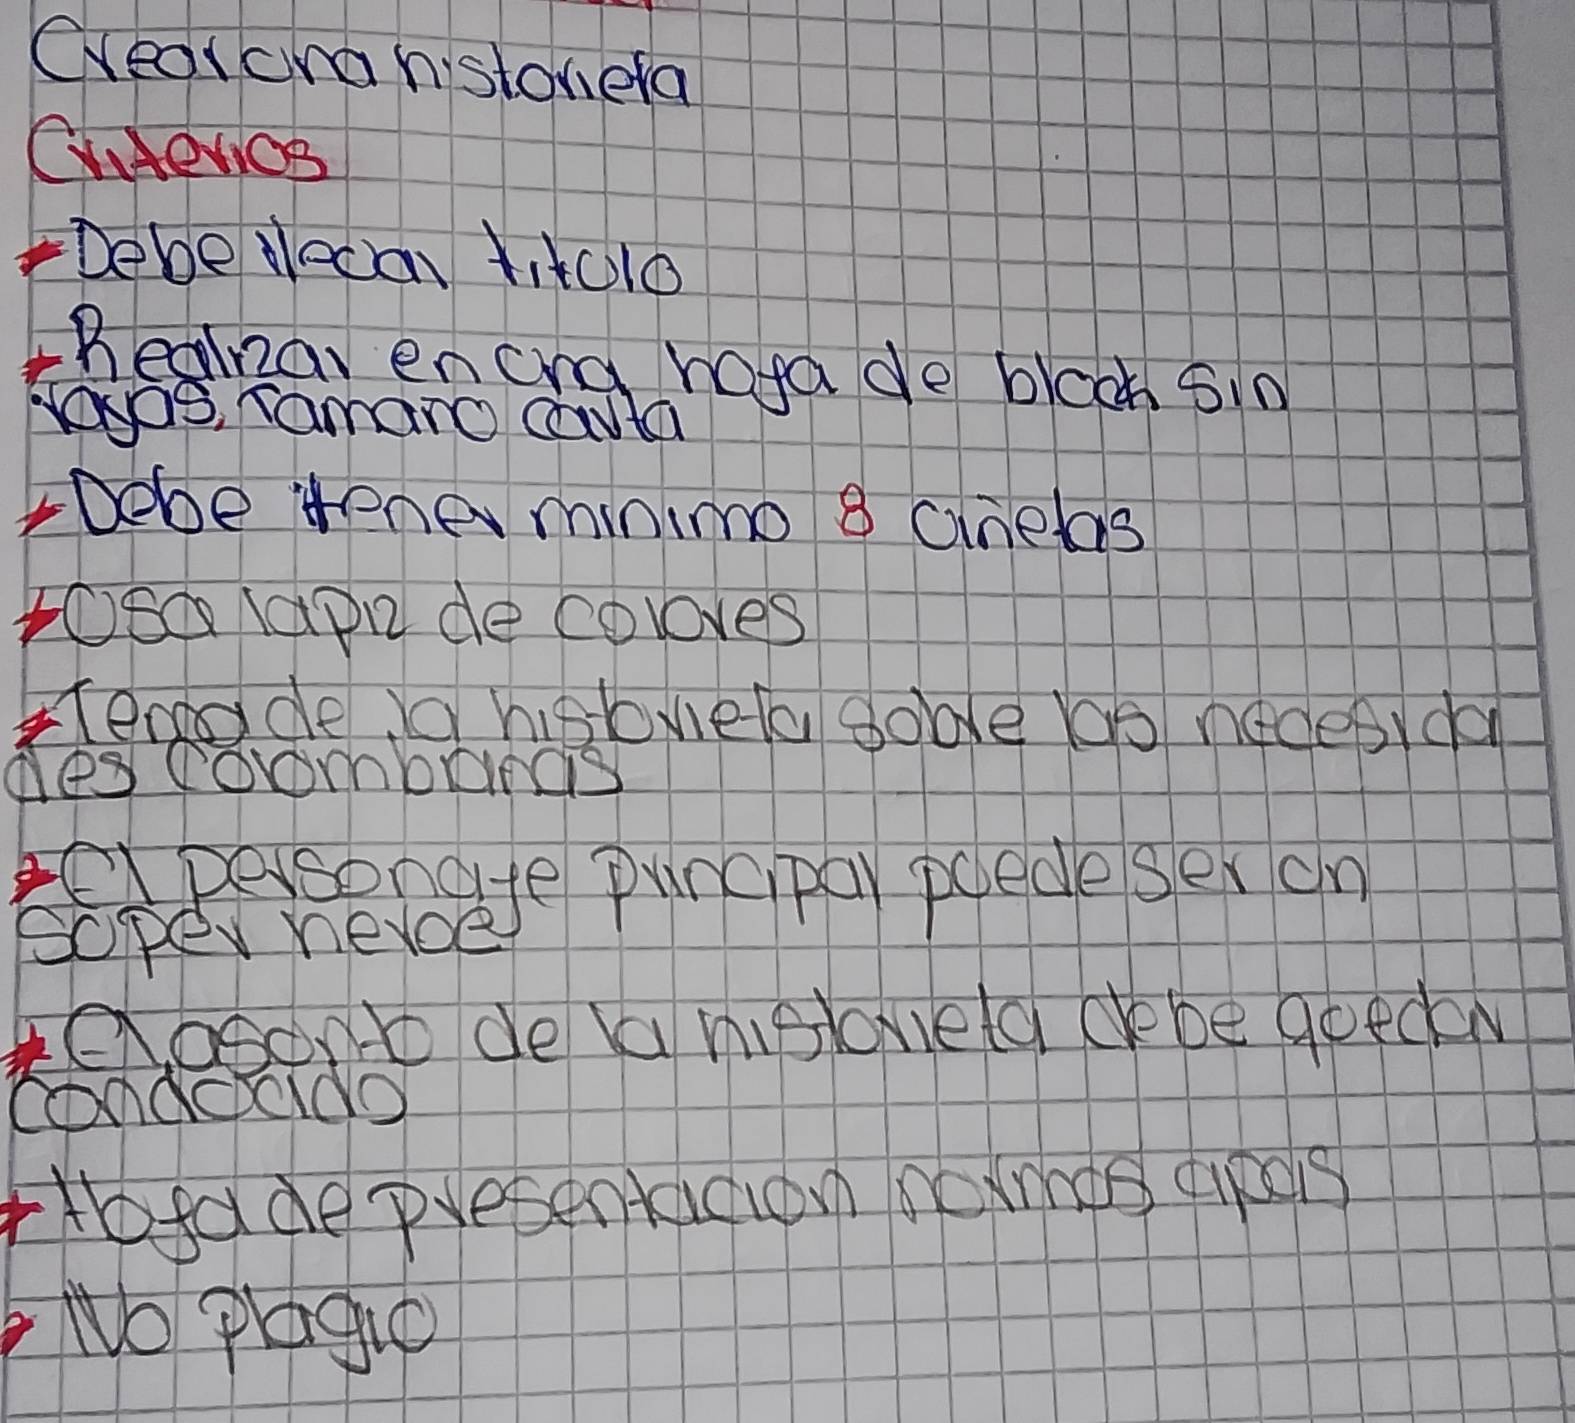 Crear una historieta
Criterios
Debe llevar titulo
Realizar en una hoja de block sin
rayas, Tamaño carta
Debe tener minimo 8 viñetas
Usar lapiz de colores
Tema de la historieta sobre las necesida
des colombianas
El personaje principal puede ser un
super heroe
El asunto de la historieta debe quedar
concluido
Hoja de presentacion normas apas
No plagio